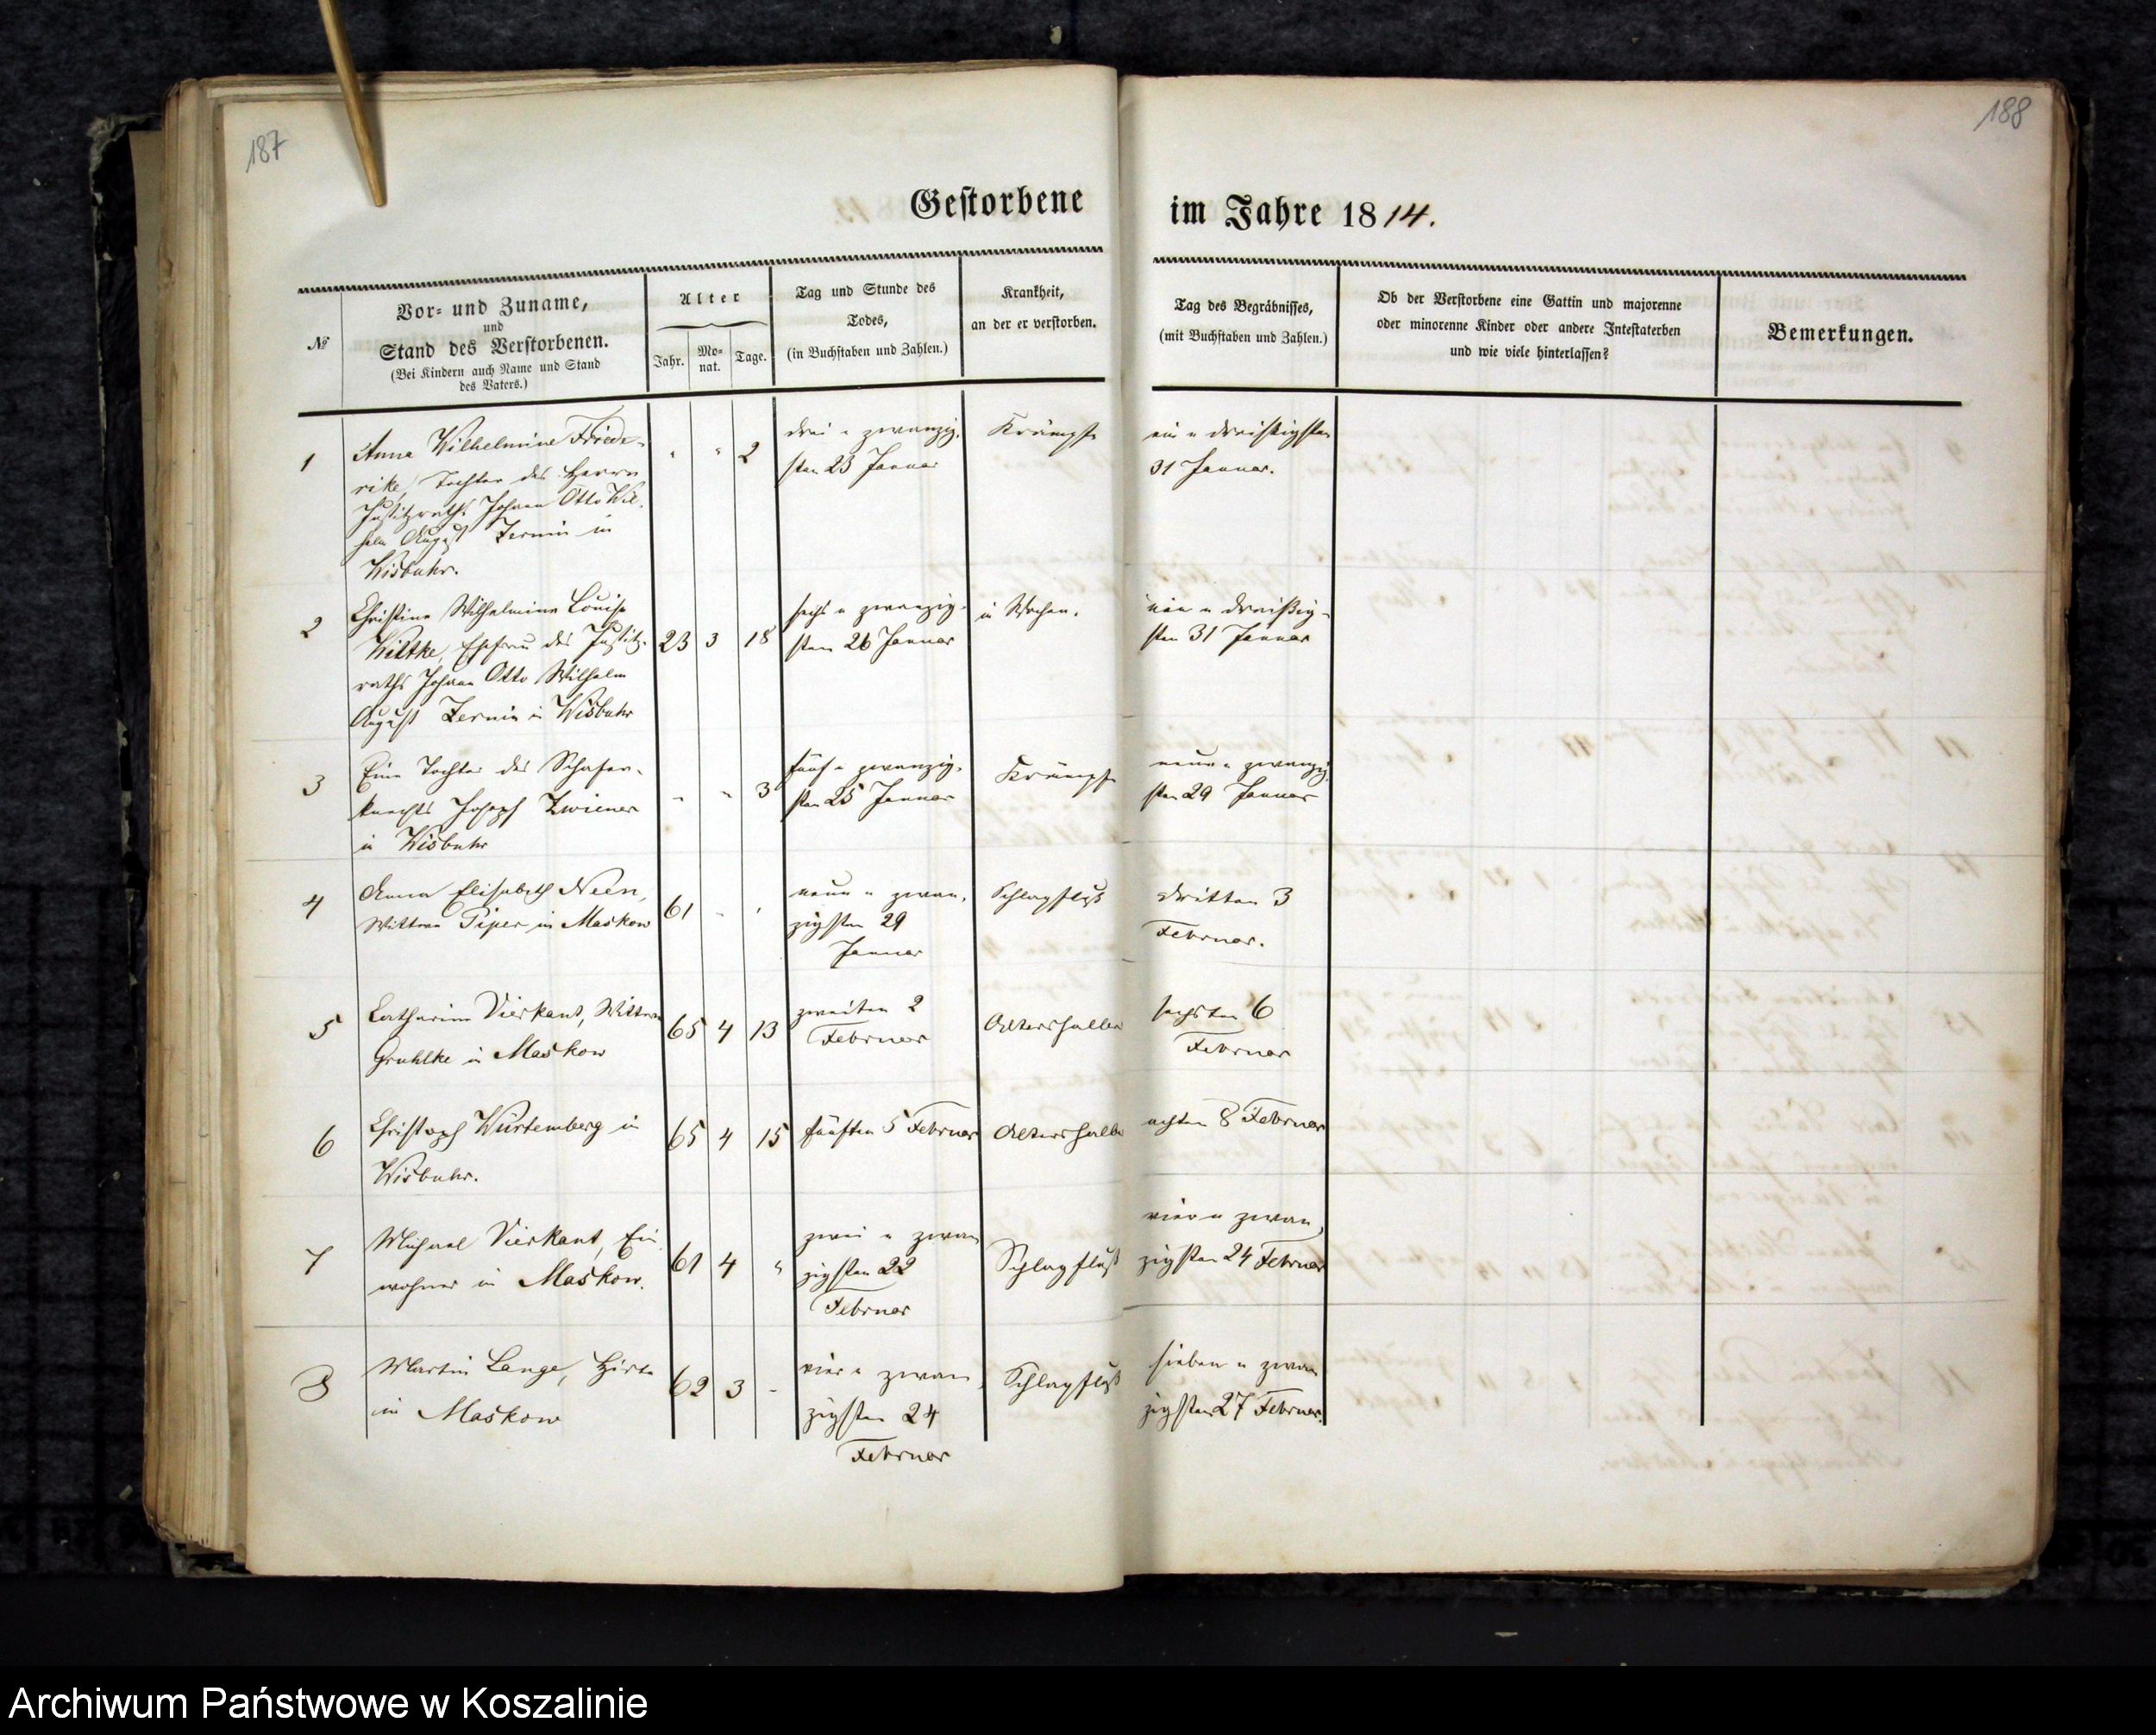 187
188
Gestorbene im Jahre 1814.
№
Vor- und Zuname,
und
Stand des Verstorbenen.
(Bei Kindern auch Name und Stand
des Vaters.)
Alter
Jahr.
Mo-
nat.
Tage.
Tag und Stunde des
Todes,
(in Buchstaben und Zahlen.)
Krankheit,
an der er verstorben.
Tag des Begräbnisses,
(mit Buchstaben und Zahlen.)
Ob der Verstorbene eine Gattin und majorenne
oder minorenne Kinder oder andere Intestaterben
und wie viele hinterlassen?
Bemerkungen.
1
Anna Wilhelmine Friede-
rike, Tochter des Herrn
Justizraths Johann Otto Wil-
helm August Zernin in
Wisbuhr.
" " 2
drei u zwanzig-
sten 23 Januar
Krämpfe
ein u dreißigsten
31 Januar.
2
Christine Wilhelmine Louise
Wittke, Ehefrau des Justiz-
raths Johann Otto Wilhelm
August Zernin in Wisbuhr
23 3 18
sechs u zwanzig-
sten 26 Januar
in Wochen.
ein u dreißig-
sten 31 Januar
3
Eine Tochter des Schäfer-
knechts Joseph Zwiener
in Wisbuhr
" " 3
fünf u zwanzig-
sten 25 Januar
Krämpfe
neun u zwanzig-
sten 29 Januar
4
Anna Elisabeth Neen,
Wittwe Piper in Maskow
61 - -
neun u zwan-
zigsten 29
Januar
Schlagfluß
dritten 3
Februar.
5
Catharine Vierkant, Wittwe
Gruhlke in Maskow
65 4 13
zweiten 2
Februar
Altershalber
sechsten 6
Februar
6
Christoph Würtemberg in
Wisbuhr.
65 4 15
fünften 5 Februar
Altershalber
achten 8 Februar
7
Michael Vierkant, Ein-
wohner in Maskow.
61 4 "
zwei u zwan
zigsten 22
Februar
Schlagfluß
vier u zwan
zigsten 24 Februar
8
Martin Lange, Hirte
in Maskow
62 3 -
vier u zwan
zigsten 24
Februar
Schlagfluß
sieben u zwan
zigsten 27 Februar.
Archiwum Państwowe w Koszalinie